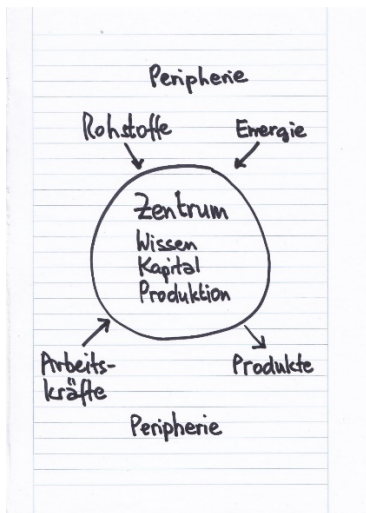 Peripherie
Rohstoffe Energie
Zentrum
Wissen
Kapital
Produktion
Arbeits-
kräfte
Produkte
Peripherie